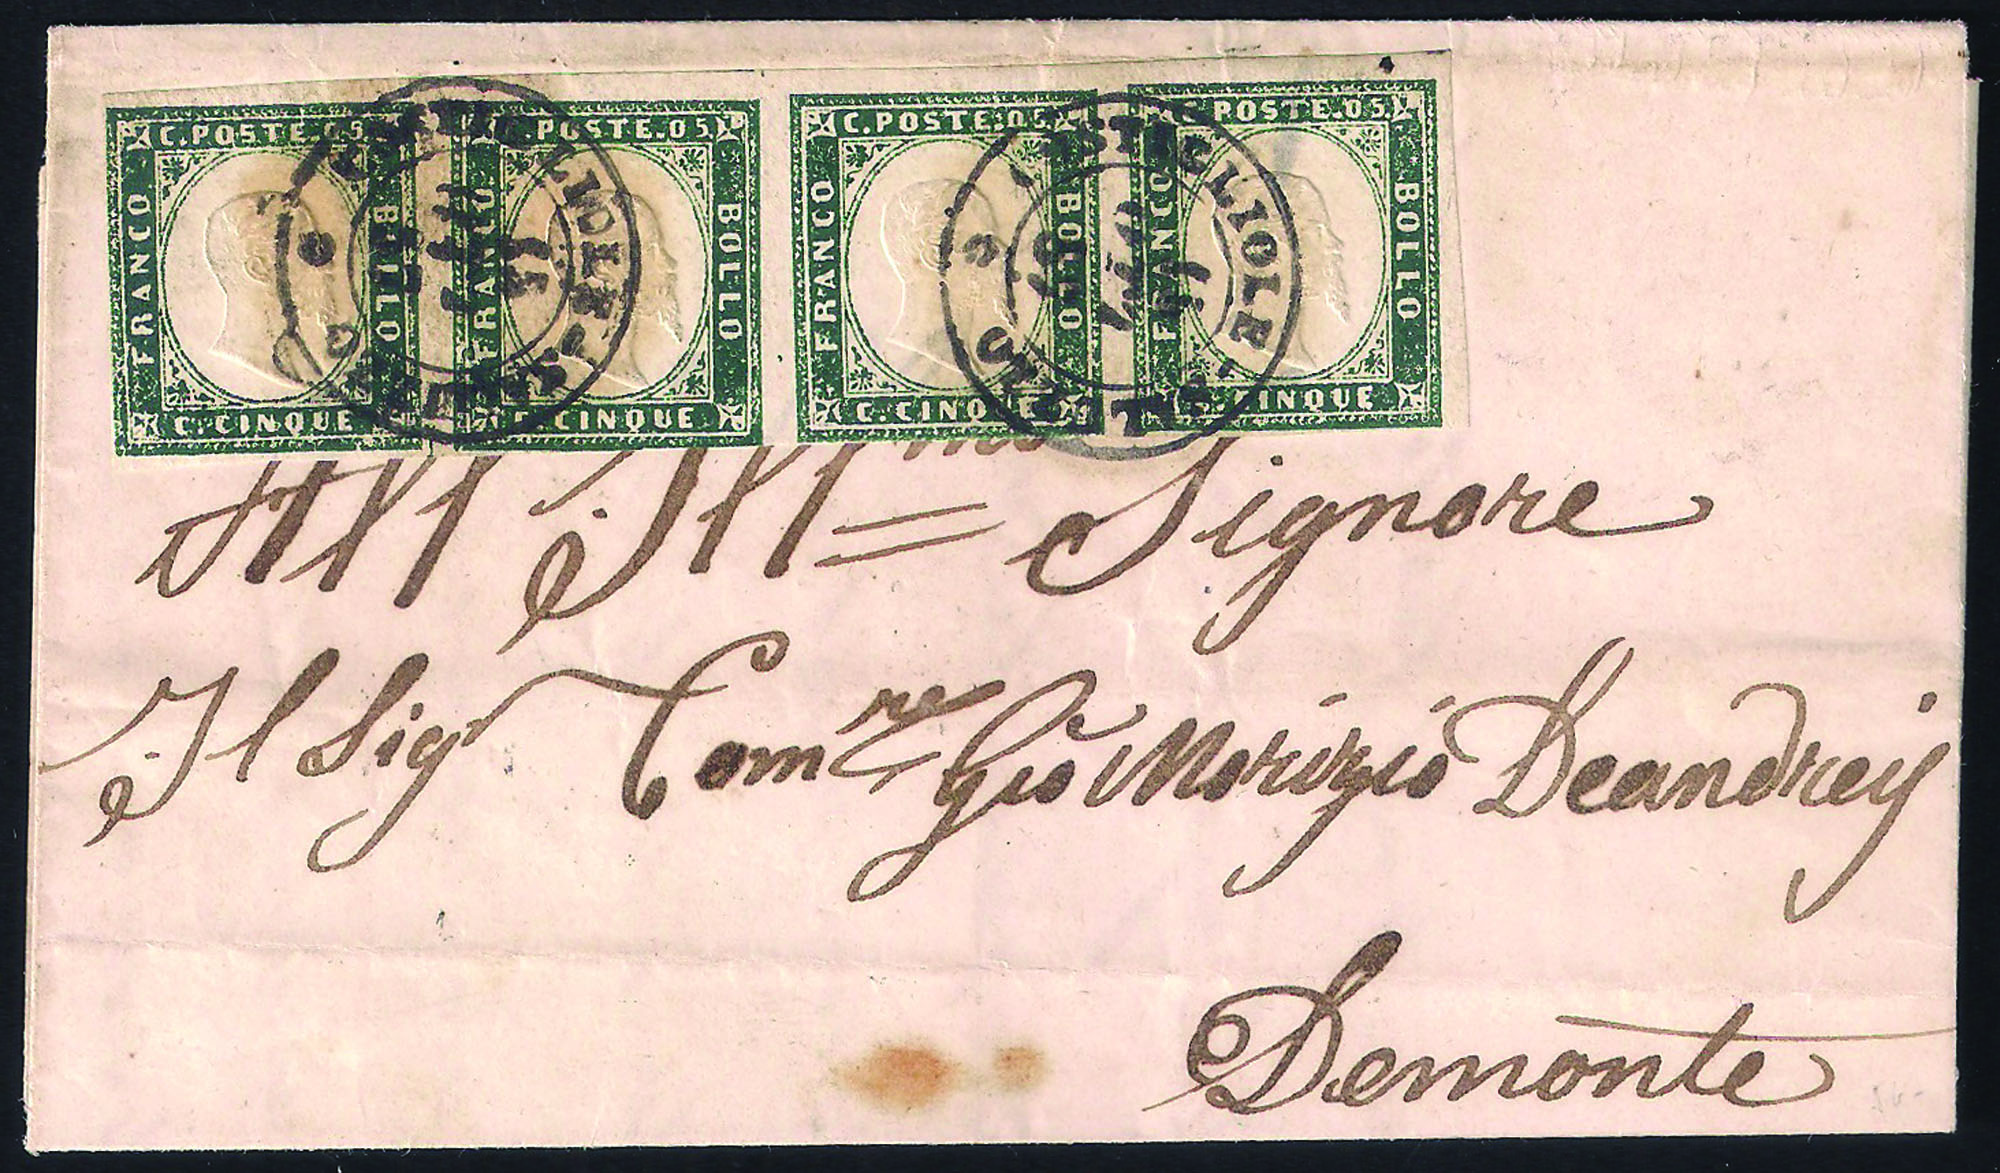 C. POSTE. 05. C. POSTE. 05. C. POSTE. 05. C. POSTE. 05.
FRANCO BOLLO FRANCO BOLLO FRANCO BOLLO FRANCO BOLLO
C. CINQUE C. CINQUE C. CINQUE C. CINQUE
CASTIGLIOLE SALUZZO
All' Ill.mo Signore
Il Sigr Comre Gio Morizio Deandreij
Demonte